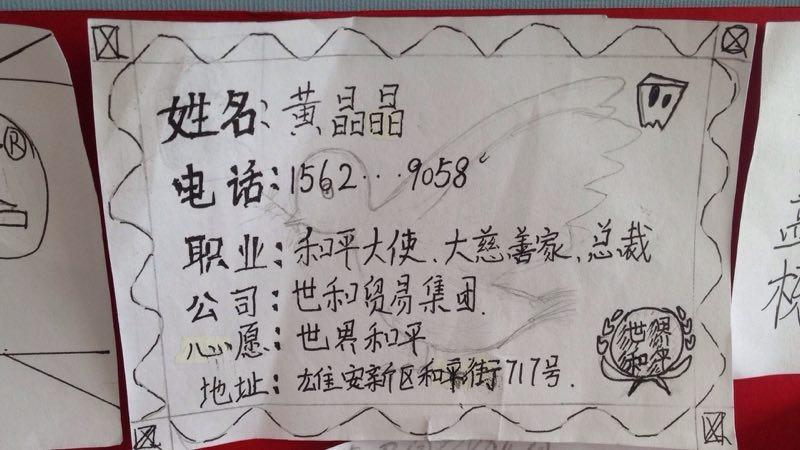 姓名:黄晶晶
电话:1562...9058
职业:和平大使、大慈善家、总裁
公司:世和贸易集团.
心愿:世界和平
地址:雄安新区和平街717号.
世界
和平
R